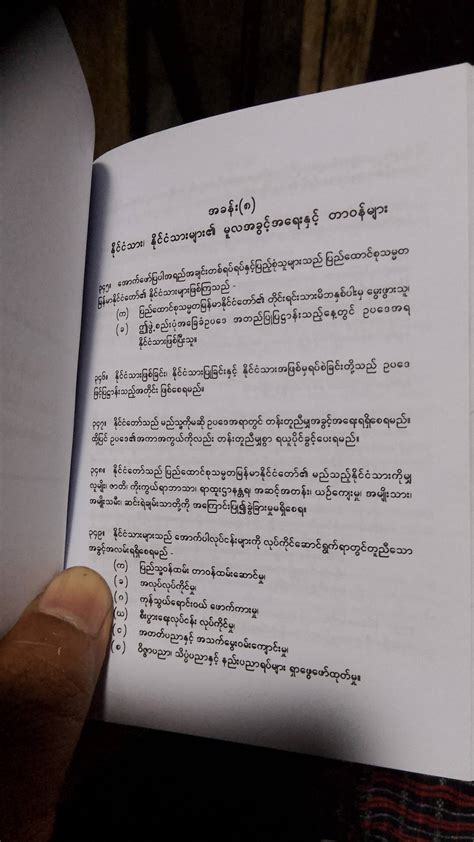 အခန်း(၈)
နိုင်ငံသား၊ နိုင်ငံသားများ၏ မူလအခွင့်အရေးနှင့် တာဝန်များ
၃၄၅။ အောက်ဖော်ပြပါအရည်အချင်းတစ်ရပ်ရပ်နှင့်ပြည့်စုံသူများသည် ပြည်ထောင်စုသမ္မတ
မြန်မာနိုင်ငံတော်၏ နိုင်ငံသားများဖြစ်ကြသည် -
(က) ပြည်ထောင်စုသမ္မတမြန်မာနိုင်ငံတော်၏ တိုင်းရင်းသားမိဘနှစ်ပါးမှ မွေးဖွားသူ၊
(ခ) ဤဖွဲ့စည်းပုံအခြေခံဥပဒေ အတည်ပြုပြဋ္ဌာန်းသည့်နေ့တွင် ဥပဒေအရ
နိုင်ငံသားဖြစ်ပြီးသူ။
၃၄၆။ နိုင်ငံသားဖြစ်ခြင်း၊ နိုင်ငံသားပြုခြင်းနှင့် နိုင်ငံသားအဖြစ်မှရပ်စဲခြင်းတို့သည် ဥပဒေ
ဖြင့်ပြဋ္ဌာန်းသည့်အတိုင်း ဖြစ်စေရမည်။
၃၄၇။ နိုင်ငံတော်သည် မည်သူ့ကိုမဆို ဥပဒေအရာတွင် တန်းတူညီမျှအခွင့်အရေးရရှိစေရမည်။
ထို့ပြင် ဥပဒေ၏အကာအကွယ်ကိုလည်း တန်းတူညီမျှစွာ ရယူပိုင်ခွင့်ပေးရမည်။
၃၄၈။ နိုင်ငံတော်သည် ပြည်ထောင်စုသမ္မတမြန်မာနိုင်ငံတော်၏ မည်သည့်နိုင်ငံသားကိုမျှ
လူမျိုး၊ ဇာတိ၊ ကိုးကွယ်ရာဘာသာ၊ ရာထူးဌာနန္တရ၊ အဆင့်အတန်း၊ ယဉ်ကျေးမှု၊ အမျိုးသား၊
အမျိုးသမီး၊ ဆင်းရဲချမ်းသာတို့ကို အကြောင်းပြု၍ခွဲခြားမှုမရှိစေရ။
၃၄၉။ နိုင်ငံသားများသည် အောက်ပါလုပ်ငန်းများကို လုပ်ကိုင်ဆောင်ရွက်ရာတွင်တူညီသော
အခွင့်အလမ်းရရှိစေရမည် -
(က) ပြည်သူ့ဝန်ထမ်း တာဝန်ထမ်းဆောင်မှု၊
(ခ) အလုပ်လုပ်ကိုင်မှု၊
(ဂ) ကုန်သွယ်ရောင်းဝယ် ဖောက်ကားမှု၊
(ဃ) စီးပွားရေးလုပ်ငန်း လုပ်ကိုင်မှု၊
(င) အတတ်ပညာနှင့် အသက်မွေးဝမ်းကျောင်းမှု၊
(စ) ဝိဇ္ဇာပညာ၊ သိပ္ပံပညာနှင့် နည်းပညာရပ်များ ရှာဖွေဖော်ထုတ်မှု။